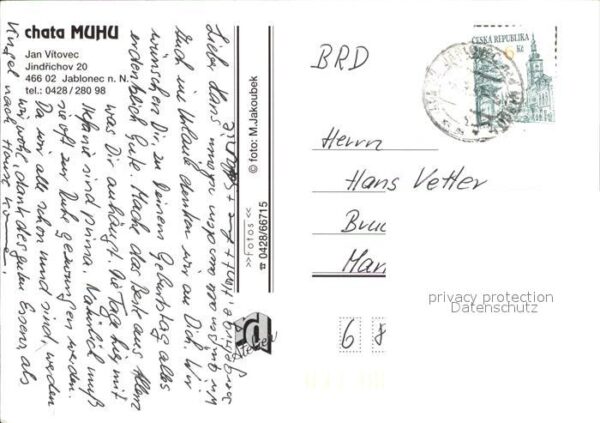 chata MUHU
Jan Vítovec
Jindřichov 20
466 02 Jablonec n. N.
tel.: 0428 / 280 98
Lieber Hans
Auch im Urlaub denken wir an Dich. Wir
wünschen Dir zu Deinem Geburtstag alles
erdenklich Gute. Mach das Beste aus Allem
was Dir anhängt. Die Tage hier mit
sind prima. Natürlich muß
sie oft zur Ruhe gezwungen werden.
Da wir alle schon rund sind, werden
wir wohl, dank des guten Essens, als
Kugel nach Hause
>>Fotos<<
☎ 0428/66715
© foto: M.Jakoubek
Atelier
ČESKÁ REPUBLIKA
6 Kč
JABLONEC
BRD
Herrn
Hans Vetter
Bru
Mar
privacy protection
Datenschutz
6